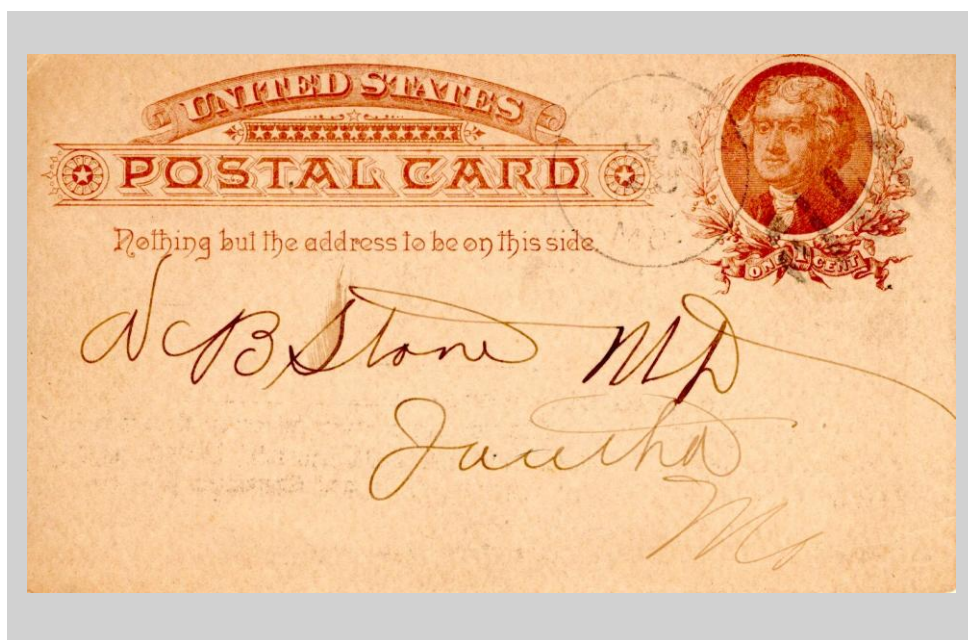 UNITED STATES
POSTAL CARD
Nothing but the address to be on this side.
ONE 1 CENT
JAN
MO.
N C B Stone MD
Mo